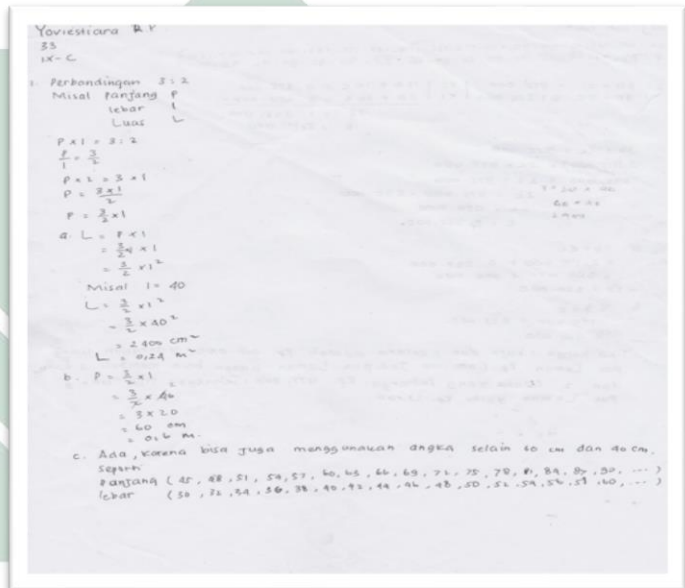 Yoviestiara R P
33
IX-C
1. Perbandingan 3:2
Misal Panjang P
lebar l
Luas L
P x l = 3:2
P/l = 3/2
P x 2 = 3 x l
P = 3 x l / 2
P = 3/2 x l
a. L = P x l
= 3/2 x l
= 3/2 x l²
Misal l = 40
L = 3/2 x l²
= 3/2 x 40²
= 2400 cm²
L = 0,24 m²
b. P = 3/2 x l
= 3/2 x 40
= 3 x 20
= 60 cm
= 0,6 m.
c. Ada, karena bisa juga menggunakan angka selain 60 cm dan 40 cm.
seperti
Panjang (45, 48, 51, 54, 57, 60, 63, 66, 69, 72, 75, 78, 84, 87, 90, ...)
lebar (30, 32, 34, 36, 38, 40, 42, 44, 46, 48, 50, 52, 54, 56, 58, 60, ...)